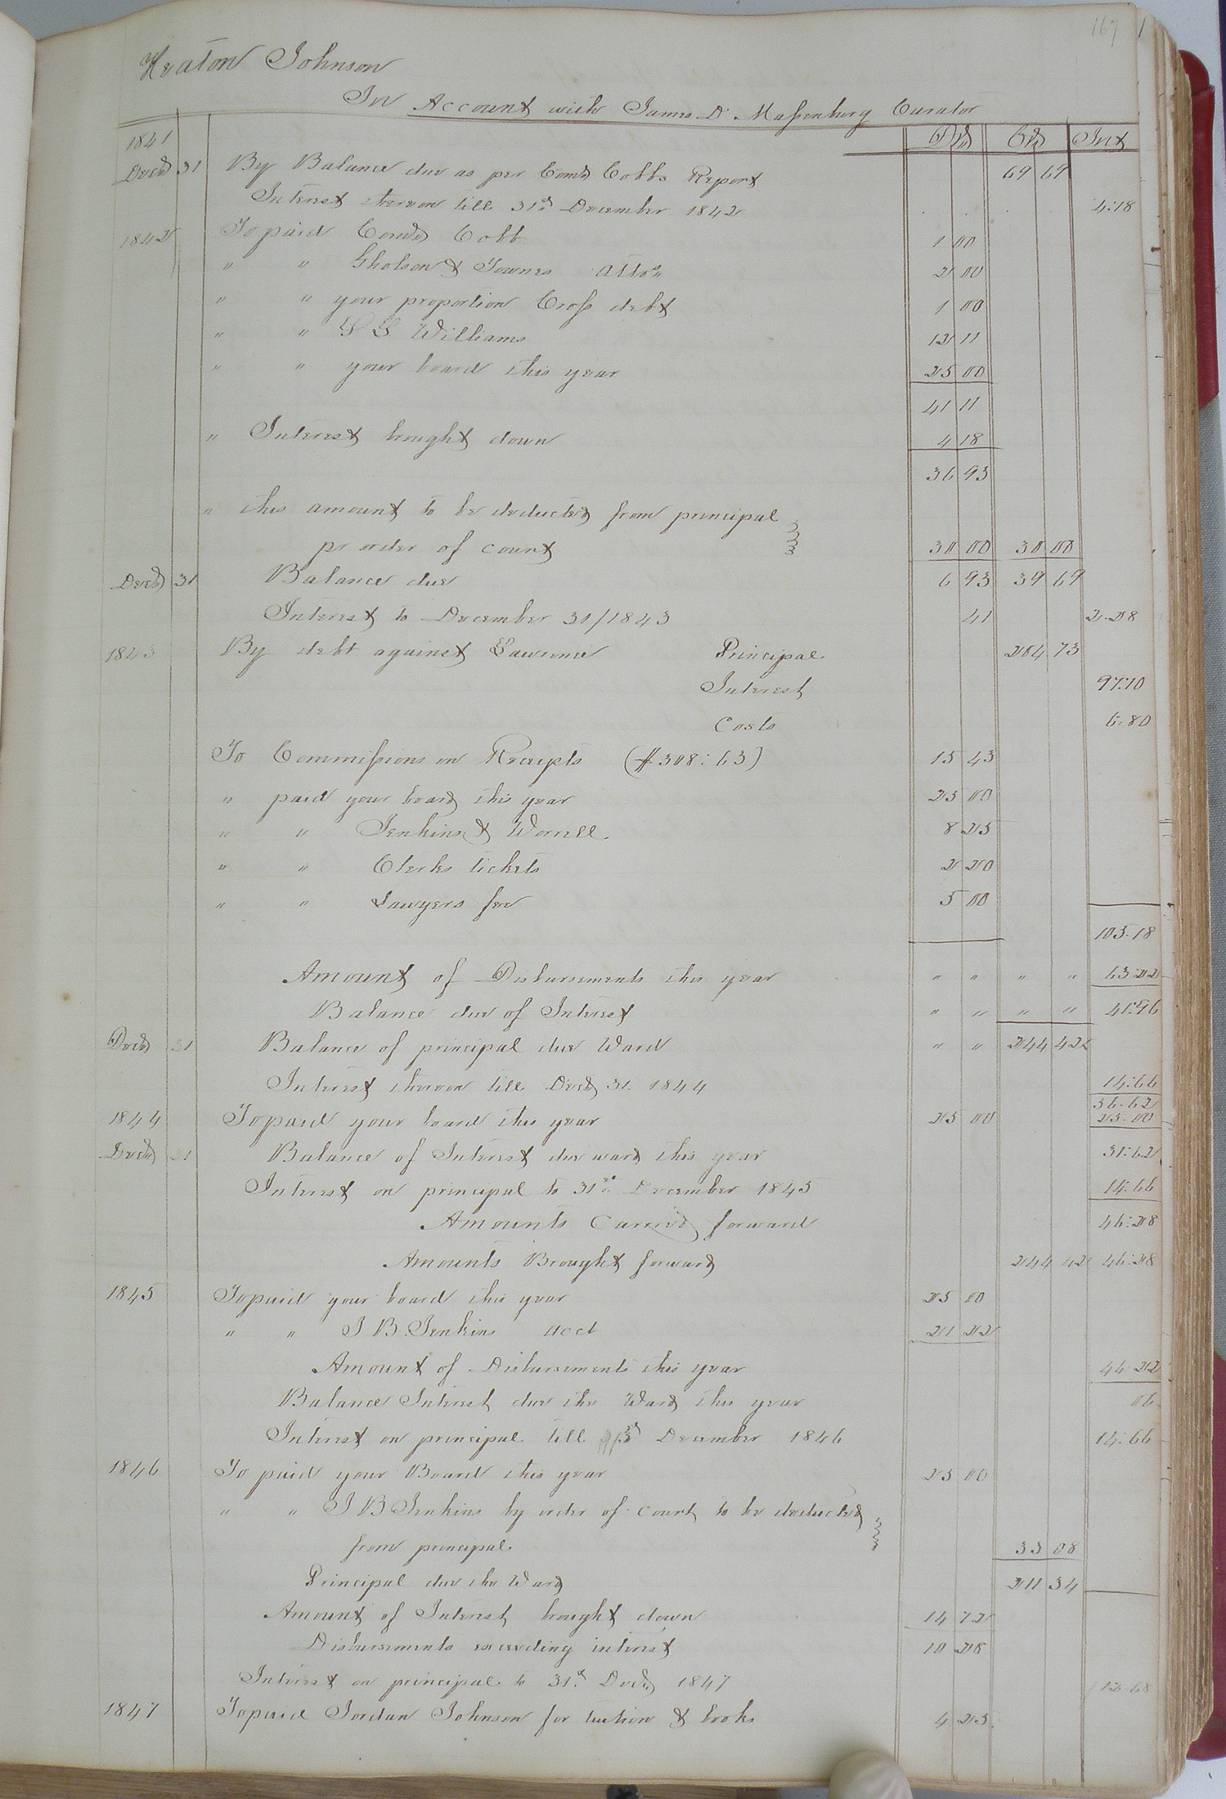 167
Keaton Johnson
In Account with James D. Massenburg Curator
1841 Drs Crs Int
Decd 31 By Balance due as per Comd Cobbs Report 69 69
Interest thereon till 31st December 1842 4:18
1842 To paid Comd Cobb 1 00
" " Gholson & Townes attos 2 00
" " your proportion Cross debt 1 00
" " Williams 12 11
" " your board this year 25 00
41 11
" Interest brought down 4 18
36 93
" this amount to be deducted from principal
pr order of court 30 00 30 00
Decd 31 Balance due 6 93 39 69
Interest to December 31/1843 41 2.28
1843 By debt against Lawrence Principal 204 73
Interest 97:10
Costs 6.80
To Commissions on Receipts ($308:63) 15 43
" paid your board this year 25 00
" " Jenkins & Worrell 8 25
" " Clerks tickets 2 20
" " Lawyers fee 5 00
105.18
Amount of Disbursements this year " " " " 63.22
Balance due of Interest " " " " 41:96
Decd 31 Balance of principal due Ward " " 244 42
Interest thereon till Decd 31 1844 14:66
56.62
1844 To paid your board this year 25 00 25.00
Decd 31 Balance of Interest due ward this year 31:62
Interest on principal to 31st December 1845 14.66
Amounts Carried forward 46:28
Amounts Brought forward 244 42 46:28
1845 To paid your board this year 25 00
" " J B Jenkins acct 21 22
Amount of Disbursements this year 46.22
Balance Interest due the Ward this year 06
Interest on principal till December 1846 14.66
1846 To paid your Board this year 25 00
" " J B Jenkins by order of court to be deducted
from principal. 33 08
Principal due the Ward 211 34
Amount of Interest brought down 14 72
Disbursements exceeding interest 10 28
Interest on principal to 31st Decd 1847 12.68
1847 To paid Jordan Johnson for tuition & books 4 25